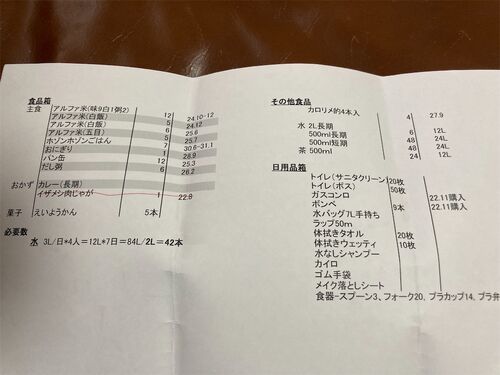 食品箱
主食 アルファ米(味9白1粥2) 12 24.10-12
アルファ米(白飯) 5 24.12
アルファ米(白飯) 6 25.6
アルファ米(五目) 5 25.7
ホゾンホゾンごはん 7 30.6-31.1
おにぎり 1 28.9
パン缶 12 25.3
だし粥 6 26.2
おかず カレー(長期)
イザメシ肉じゃが 1 22.9
菓子 えいようかん 5本
必要数
水 3L/日*4人=12L*7日=84L/2L=42本
その他食品
カロリメ的4本入 4 27.9
水 2L長期 6 12L
500ml長期 48 24L
500ml短期 48 24L
茶 500ml 24 12L
日用品箱
トイレ(サニタクリーン) 20枚
トイレ(ボス) 50枚
ガスコンロ 22.11購入
ボンベ 9本 22.11購入
水バッグ7L手持ち
ラップ50m
体拭きタオル 20枚
体拭きウェッティ 10枚
水なしシャンプー
カイロ
ゴム手袋
メイク落としシート
食器-スプーン3、フォーク20、プラカップ14、プラ弁